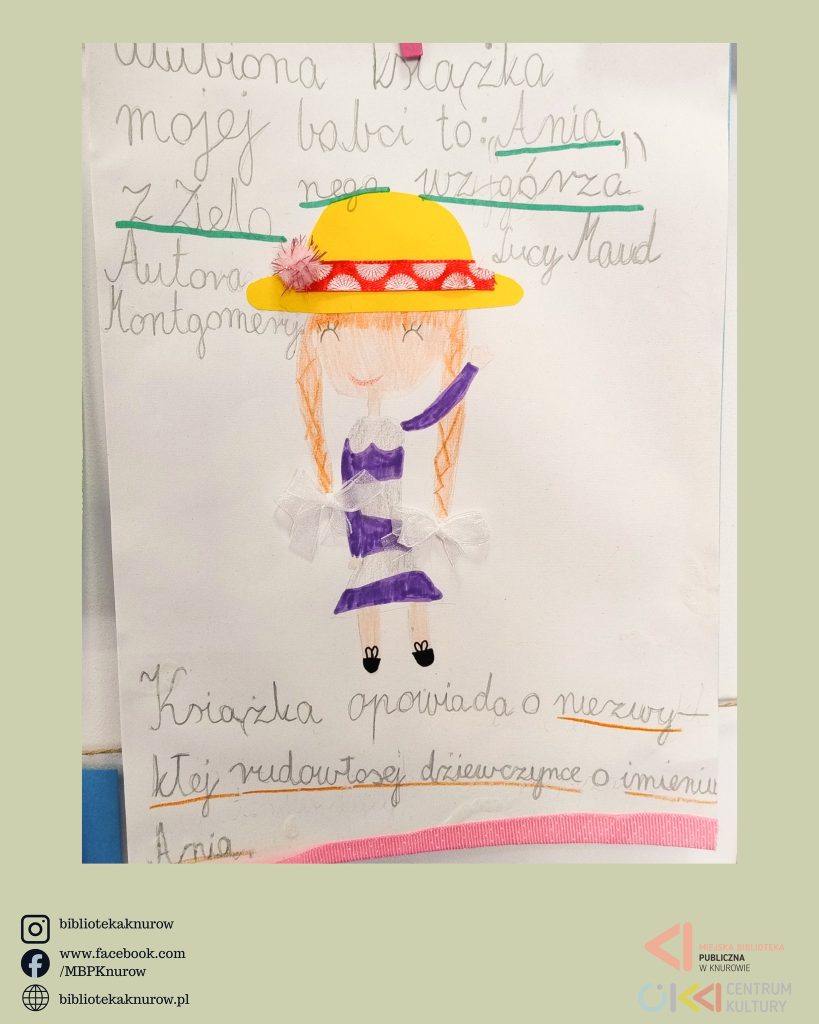 Ulubiona książka
mojej babci to: „Ania
z Zielonego wzgórza"
Autora Lucy Maud
Montgomery
Książka opowiada o niezwy-
kłej rudowłosej dziewczynce o imieniu
Ania
bibliotekaknurow
www.facebook.com
/MBPKnurow
bibliotekaknurow.pl
MIEJSKA BIBLIOTEKA
PUBLICZNA
W KNUROWIE
CENTRUM
KULTURY